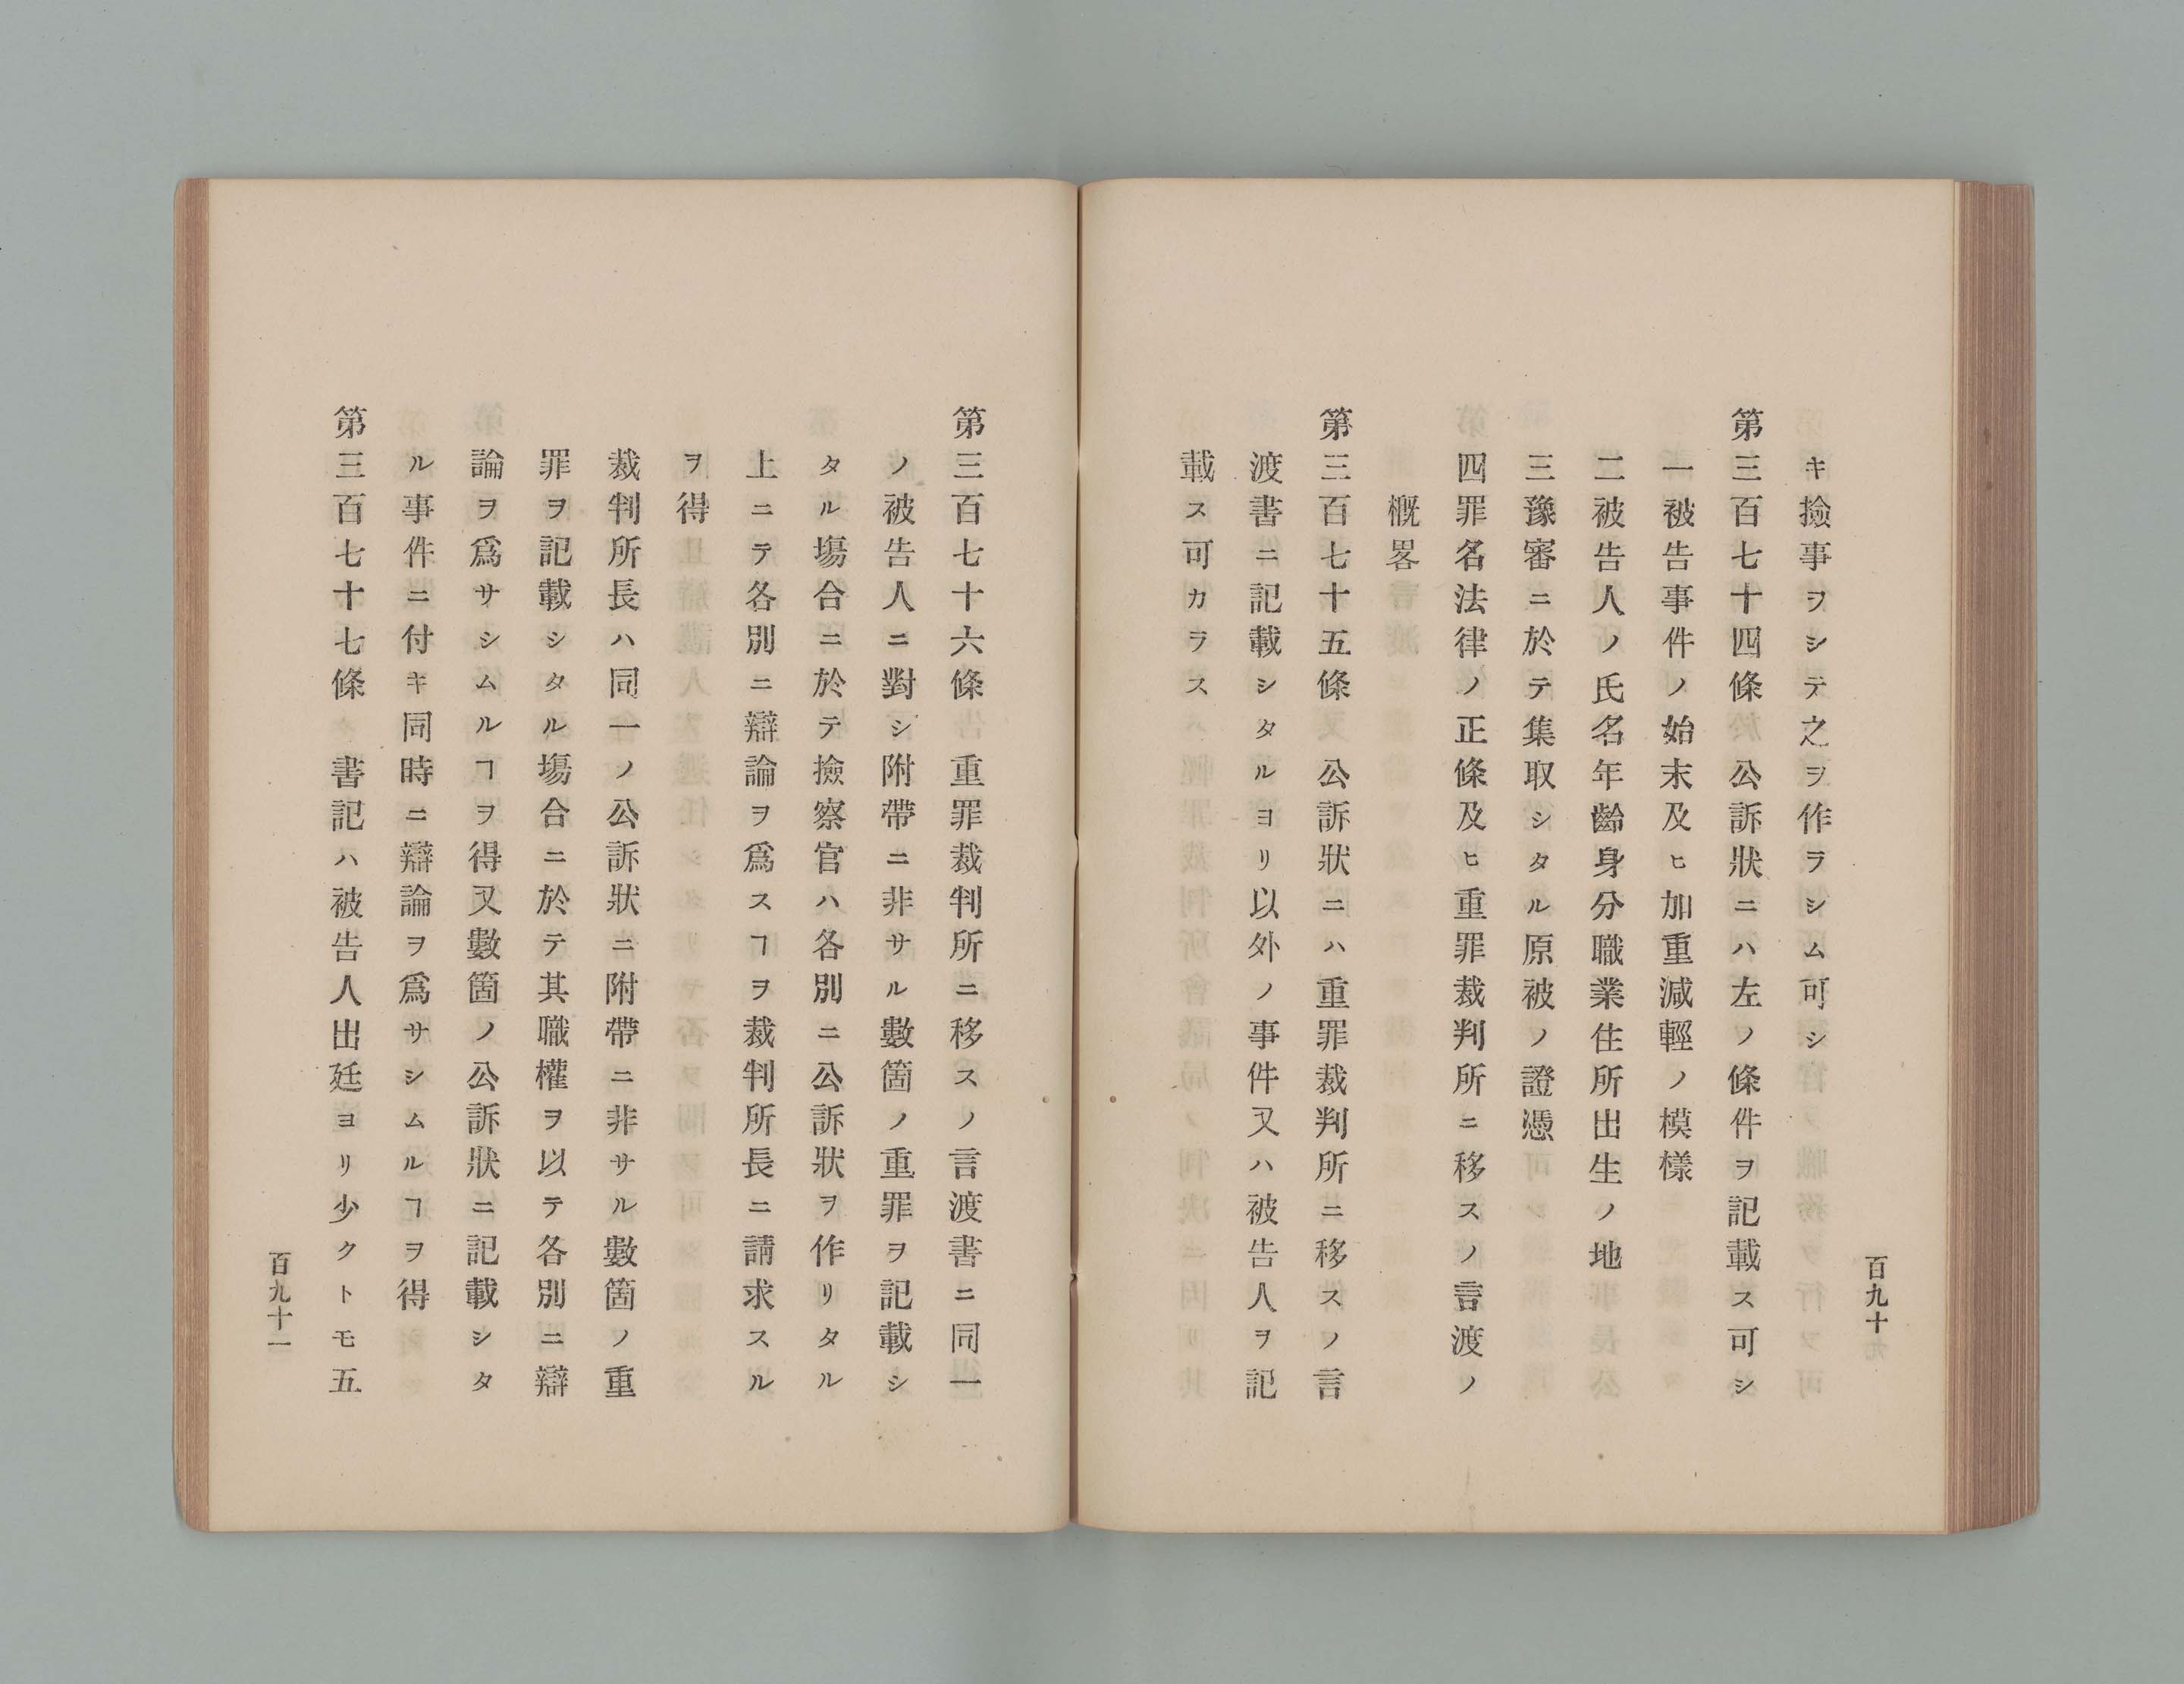 キ撿事ヲシテ之ヲ作ラシム可シ
第三百七十四條　公訴狀ニハ左ノ條件ヲ記載ス可シ
一被告事件ノ始末及ヒ加重減輕ノ模樣
二被告人ノ氏名年齡身分職業住所出生ノ地
三豫審ニ於テ集取シタル原被ノ證憑
四罪名法律ノ正條及ヒ重罪裁判所ニ移スノ言渡ノ
概畧
第三百七十五條　公訴狀ニハ重罪裁判所ニ移スノ言
渡書ニ記載シタルヨリ以外ノ事件又ハ被告人ヲ記
載ス可カラス
百九十
第三百七十六條　重罪裁判所ニ移スノ言渡書ニ同一
ノ被告人ニ對シ附帶ニ非サル數箇ノ重罪ヲ記載シ
タル塲合ニ於テ撿察官ハ各別ニ公訴狀ヲ作リタル
上ニテ各別ニ辯論ヲ爲スヿヲ裁判所長ニ請求スル
ヲ得
裁判所長ハ同一ノ公訴狀ニ附帶ニ非サル數箇ノ重
罪ヲ記載シタル塲合ニ於テ其職權ヲ以テ各別ニ辯
論ヲ爲サシムルヿヲ得又數箇ノ公訴狀ニ記載シタ
ル事件ニ付キ同時ニ辯論ヲ爲サシムルヿヲ得
第三百七十七條　書記ハ被告人出廷ヨリ少クトモ五
百九十一